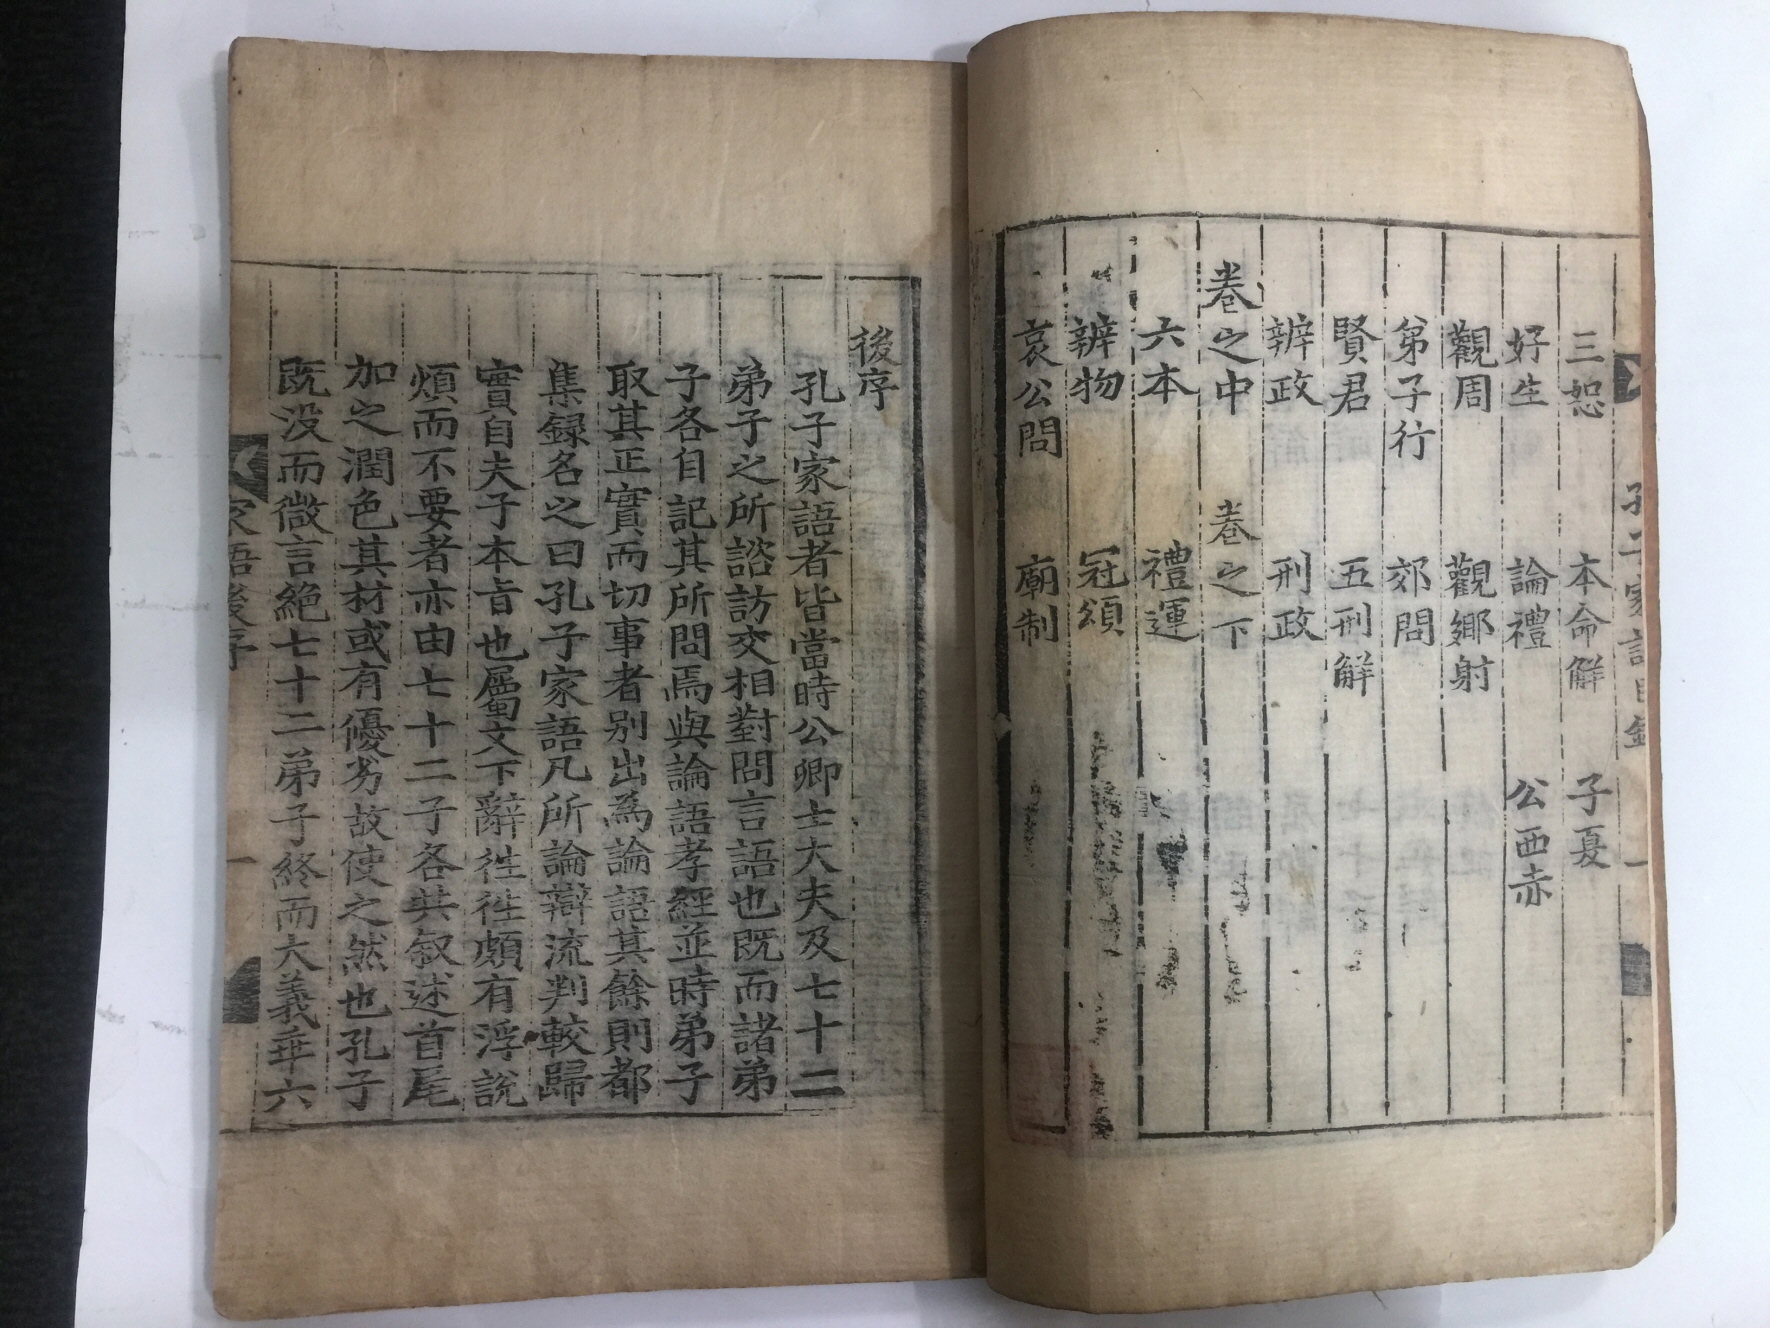 孔子家語目録 一
三恕 本命解 子夏
好生 論禮 公西赤
觀周 觀鄉射
弟子行 郊問
賢君 五刑解
辨政 刑政
卷之中 卷之下
六本 禮運
辨物 冠頌
哀公問 廟制
後序
孔子家語者皆當時公卿士大夫及七十二
弟子之所諮訪交相對問言語也既而諸弟
子各自記其所問焉與論語孝經並時弟子
取其正實而切事者別出爲論語其餘則都
集録名之曰孔子家語凡所論辯流判較歸
實自夫子本旨也屬文下辭徃徃頗有浮說
煩而不要者亦由七十二子各共叙述首尾
加之潤色其材或有優劣故使之然也孔子
既没而微言絕七十二弟子終而大義乖六
家語後序 一